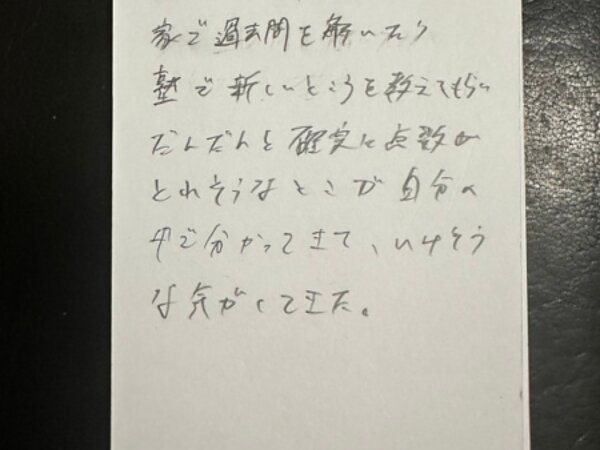 家で過去問を解いたり
塾で新しいところを教えてもらい
だんだんと確実に点数が
とれそうなところが自分の
中で分かってきて、いけそう
な気がしてきた。